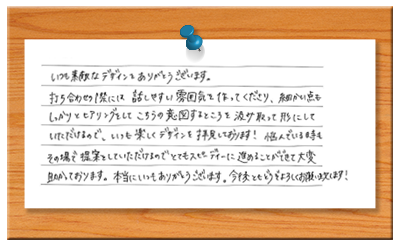 いつも素敵なデザインをありがとうございます。
打ち合わせの際には 話しやすい雰囲気を作ってくださり、細かい点も
しっかりとヒアリングをして こちらの意図するところを汲み取って形にして
いただけるので、いつも楽しくデザインを拝見しております! 悩んでいる時も
その場で提案をしていただけるのでとてもスピーディーに進めることができて大変
助かっております。本当にいつもありがとうございます。今後ともどうぞよろしくお願い致します!